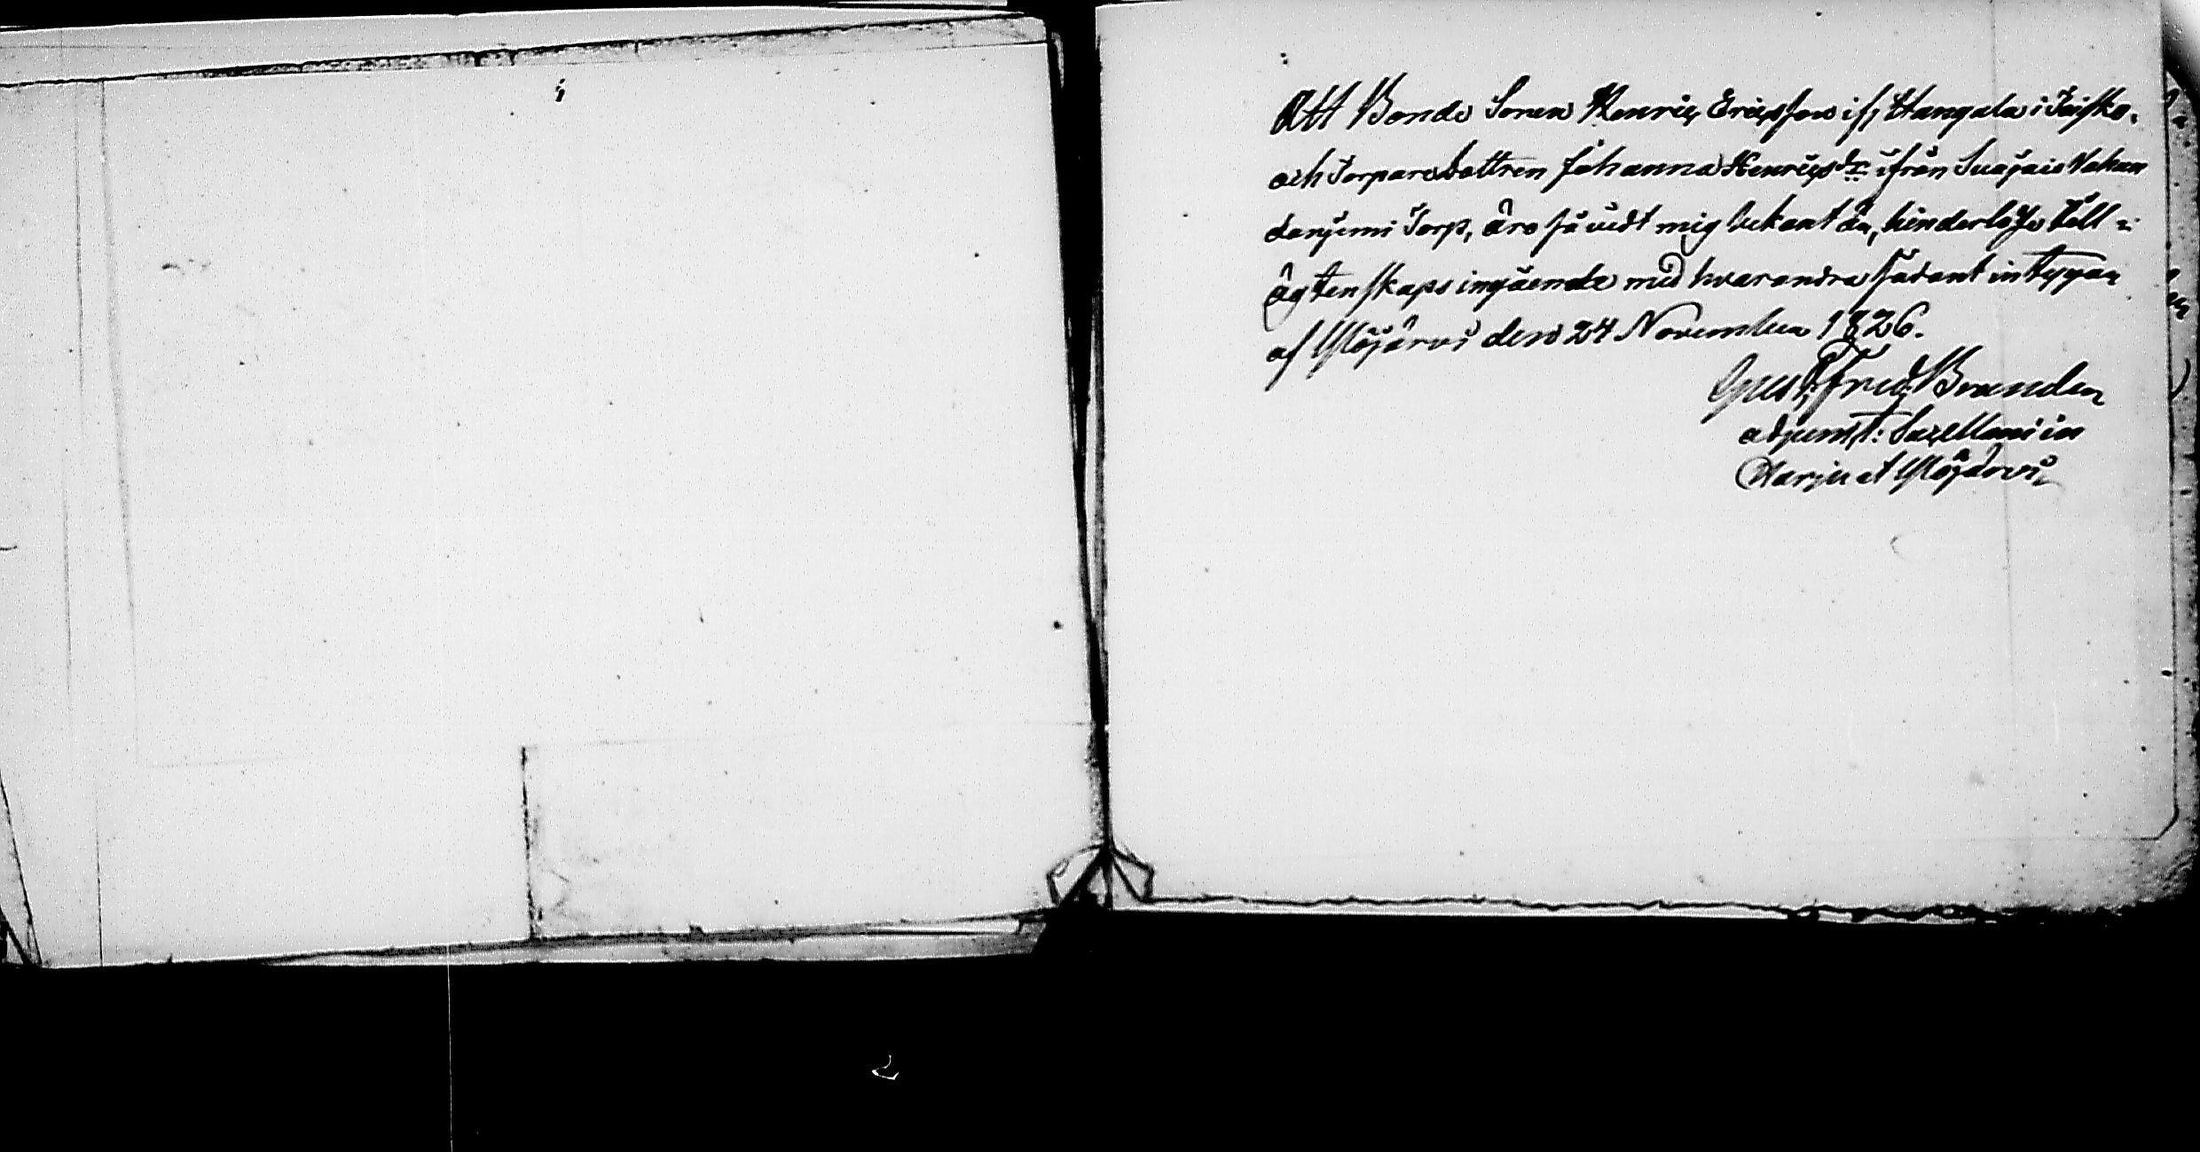 Att Bonde Sonen Henric Ericsson ifr Hangala i Teisko,
och Torparedottren Johanna Henricsdr ifrån Suojais Vahan
danjemi Torp, äro så vidt mig bekant är, hinderlöse till
ägtenskaps ingående med hvarandra, sådant intygar
af Ylöjärvi den 24 November 1826.
Gust: Fred: Brander
adjunct: Sacellani in
Harju et Ylöjärvi